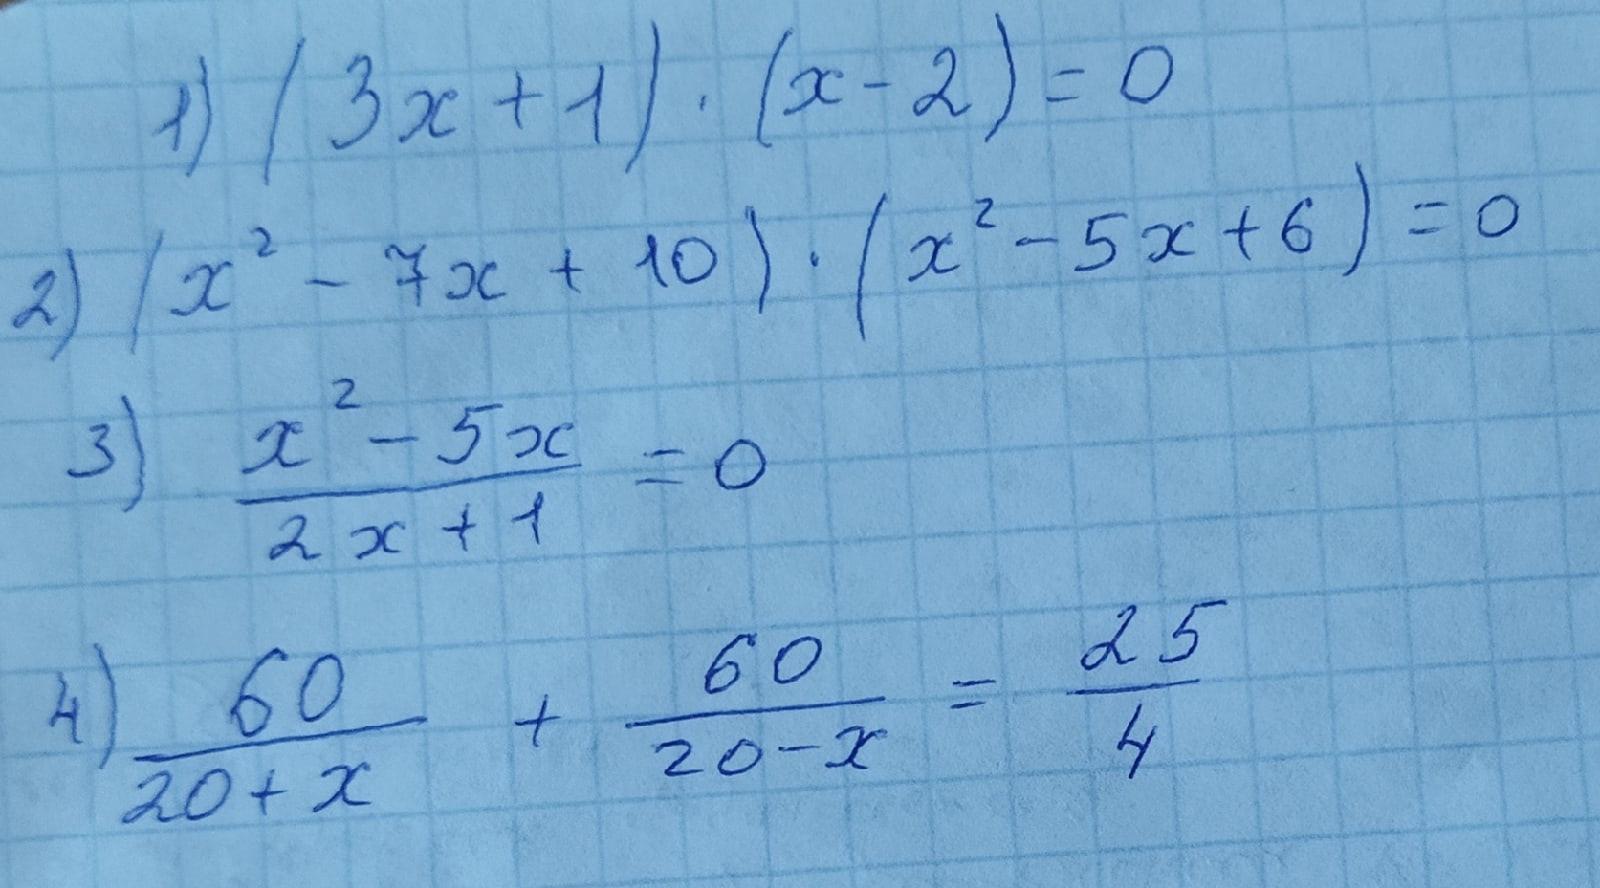 1) (3x + 1) · (x - 2) = 0
2) (x² - 7x + 10) · (x² - 5x + 6) = 0
3) \frac{x² - 5x}{2x + 1} = 0
4) \frac{60}{20 + x} + \frac{60}{20 - x} = \frac{25}{4}